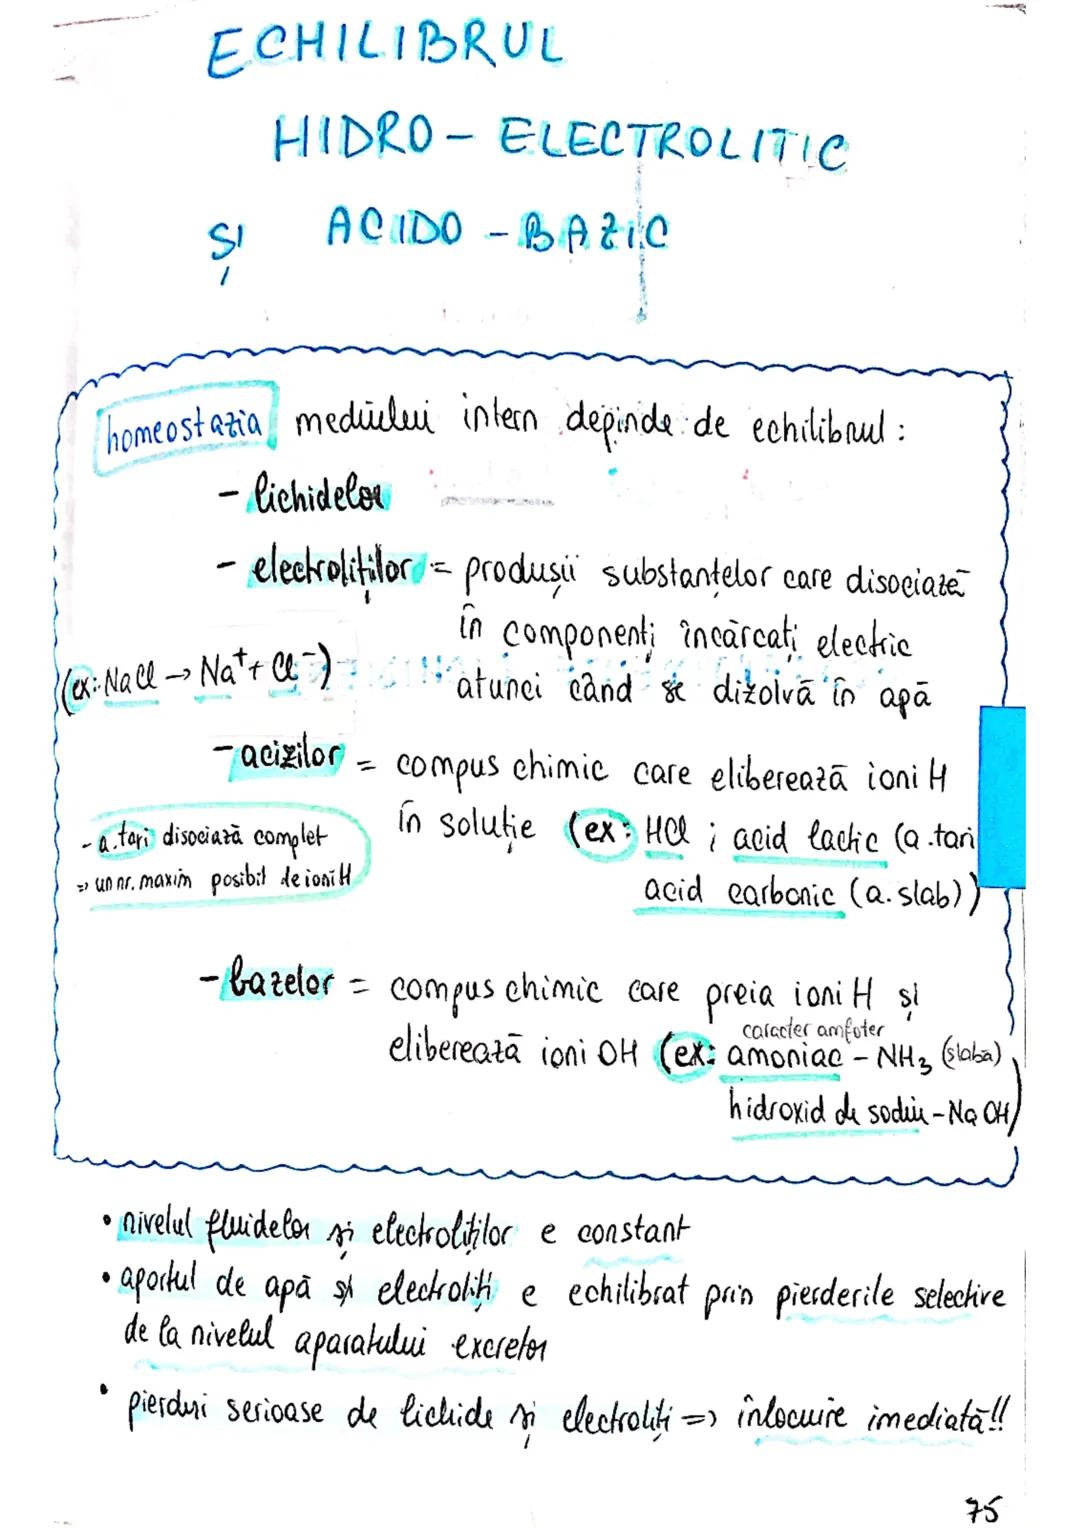 ECHILIBRUL
HIDRO - ELECTROLITIC
ȘI ACIDO - BAZIC
homeostazia mediului intern depinde de echilibrul:
- lichidelor
- electroliților = produșii substanțelor care disociază
în componenți încărcați electric
(ex: NaCl → Na⁺ + Cl⁻)
atunci când se dizolvă în apă
- acizilor = compus chimic care eliberează ioni H
în soluție (ex: HCl; acid lactic (a.tari
acid carbonic (a. slab))
- a.tari disociază complet
=> un nr. maxim posibil de ioni H
- bazelor = compus chimic care preia ioni H și
caracter amfoter
eliberează ioni OH (ex: amoniac - NH₃ (slabă)
hidroxid de sodiu - NaOH)
• nivelul fluidelor și electroliților e constant
• aportul de apă și electroliți e echilibrat prin pierderile selective
de la nivelul aparatului excretor
• pierderi serioase de lichide și electroliți => înlocuire imediată!!
75